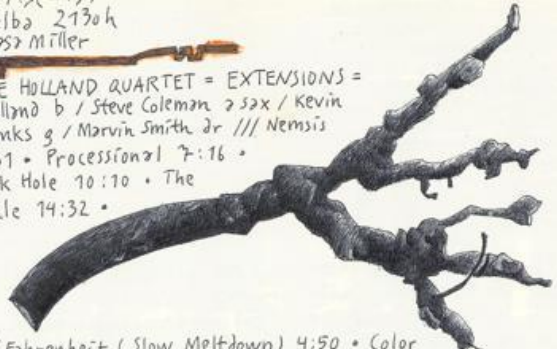 elba 213oh
osa Miller
E HOLLAND QUARTET = EXTENSIONS =
lland b / Steve Coleman a sax / Kevin
nks g / Marvin Smith dr /// Nemsis
61 • Processional 7:16 •
k Hole 10:10 • The
le 14:32 •
Fahrenheit (Slow Meltdown) 4:50 • Color